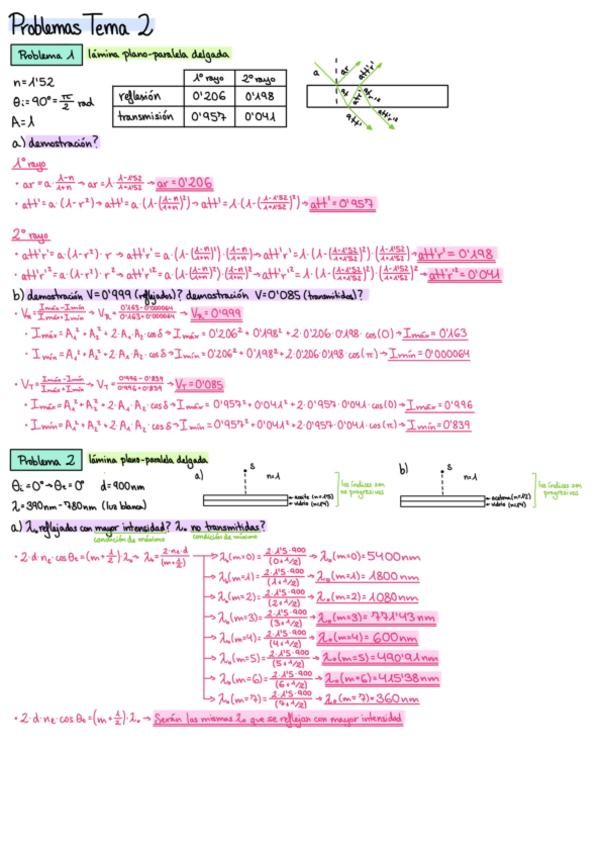 Problemas Tema 2
Problema 1 lámina plano-paralela delgada
n=1'52
θi=90°=π/2 rad
A=1
1º rayo 2º rayo
reflexión 0'206 0'198
transmisión 0'957 0'041
a ar att'r' at att' att'r'²
a) demostración?
1º rayo
• ar=a·(1-n)/(1+n)→ar=1·(1-1'52)/(1+1'52)→ar=0'206
• att'=a·(1-r²)→att'=a·(1-((1-n)/(1+n))²)→att'=1·(1-((1-1'52)/(1+1'52))²)→att'=0'957
2º rayo
• att'r'=a·(1-r²)·r→att'r'=a·(1-((1-n)/(1+n))²)·((1-n)/(1+n))→att'r'=1·(1-((1-1'52)/(1+1'52))²)·((1-1'52)/(1+1'52))→att'r'=0'198
• att'r'²=a·(1-r²)·r²→att'r'²=a·(1-((1-n)/(1+n))²)·((1-n)/(1+n))²→att'r'²=1·(1-((1-1'52)/(1+1'52))²)·((1-1'52)/(1+1'52))²→att'r'²=0'041
b) demostración V=0'999 (reflejados)? demostración V=0'085 (transmitidos)?
• VR=(Imáx-Imín)/(Imáx+Imín)→VR=(0'163-0'000064)/(0'163+0'000064)→VR=0'999
• Imáx=A₁²+A₂²+2·A₁·A₂·cosδ→Imáx=0'206²+0'198²+2·0'206·0'198·cos(0)→Imáx=0'163
• Imín=A₁²+A₂²+2·A₁·A₂·cosδ→Imín=0'206²+0'198²+2·0'206·0'198·cos(π)→Imín=0'000064
• VT=(Imáx-Imín)/(Imáx+Imín)→VT=(0'996-0'839)/(0'996+0'839)→VT=0'085
• Imáx=A₁²+A₂²+2·A₁·A₂·cosδ→Imáx=0'957²+0'041²+2·0'957·0'041·cos(0)→Imáx=0'996
• Imín=A₁²+A₂²+2·A₁·A₂·cosδ→Imín=0'957²+0'041²+2·0'957·0'041·cos(π)→Imín=0'839
Problema 2 lámina plano-paralela delgada
θi=0°→θt=0° d=900nm
λ=390nm-780nm (luz blanca)
a) S n=1 aceite (n=1'5) vidrio (n=1'4) los índices son no progresivos
b) S n=1 acetona (n=1'2) vidrio (n=1'4) los índices son progresivos
a) λo reflejadas con mayor intensidad? λo no transmitidas?
condición de máximo condición de mínimo
• 2·d·nt·cosθt=(m+1/2)·λo→λo=2·nt·d/(m+1/2)
→λo(m=0)=2·1'5·900/(0+1/2)→λo(m=0)=5400nm
→λo(m=1)=2·1'5·900/(1+1/2)→λo(m=1)=1800nm
→λo(m=2)=2·1'5·900/(2+1/2)→λo(m=2)=1080nm
→λo(m=3)=2·1'5·900/(3+1/2)→λo(m=3)=771'43nm
→λo(m=4)=2·1'5·900/(4+1/2)→λo(m=4)=600nm
→λo(m=5)=2·1'5·900/(5+1/2)→λo(m=5)=490'91nm
→λo(m=6)=2·1'5·900/(6+1/2)→λo(m=6)=415'38nm
→λo(m=7)=2·1'5·900/(7+1/2)→λo(m=7)=360nm
• 2·d·nt·cosθt=(m+1/2)·λo→Serán las mismas λo que se reflejan con mayor intensidad